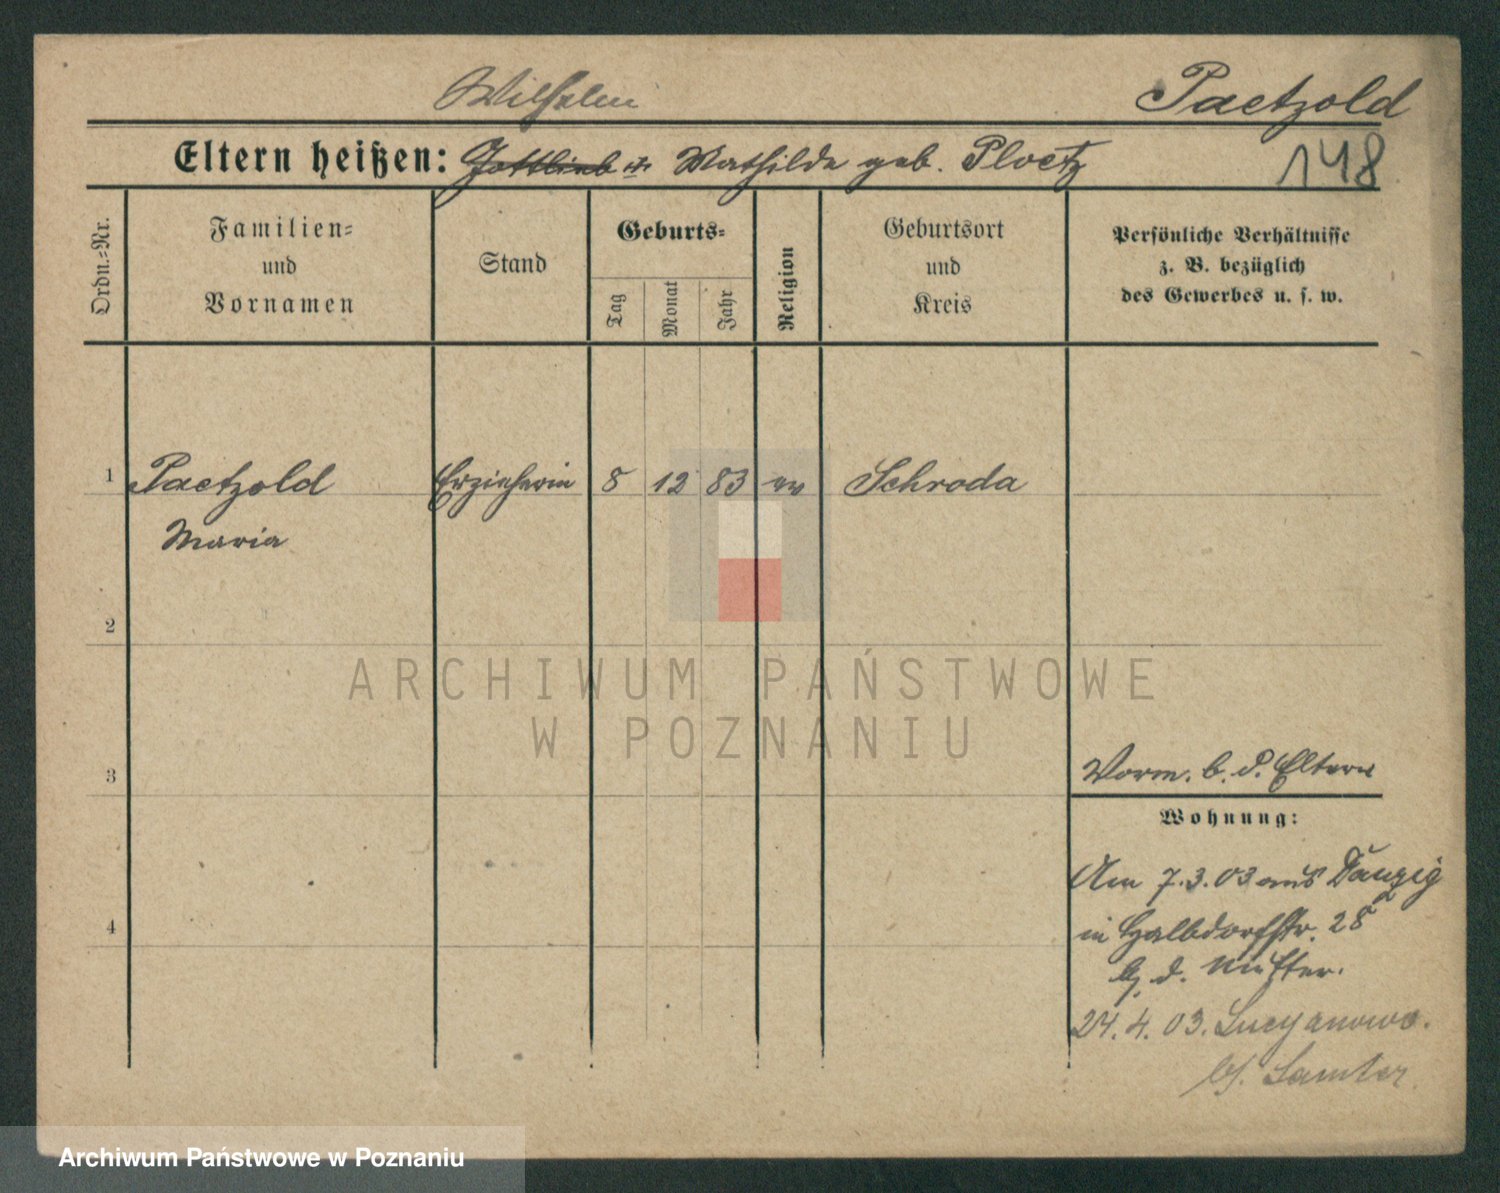 Wilhelm
Paetzold
Eltern heißen: Gottlieb u. Mathilde geb. Ploetz
148
Ordn.-Nr.
Familien-
und
Vornamen
Stand
Geburts-
Tag
Monat
Jahr
Religion
Geburtsort
und
Kreis
Persönliche Verhältnisse
z. B. bezüglich
des Gewerbes u. s. w.
1 Paetzold Erzieherin 8 12 83 ev Schroda
Maria
2
3
Vorm. b. d. Eltern
Wohnung:
Am 7.3.03 aus Danzig
in Halbdorfstr. 28
b. d. Mutter.
4
24.4.03. Lucyanowo.
b/. Samter
ARCHIWUM PAŃSTWOWE
W POZNANIU
Archiwum Państwowe w Poznaniu